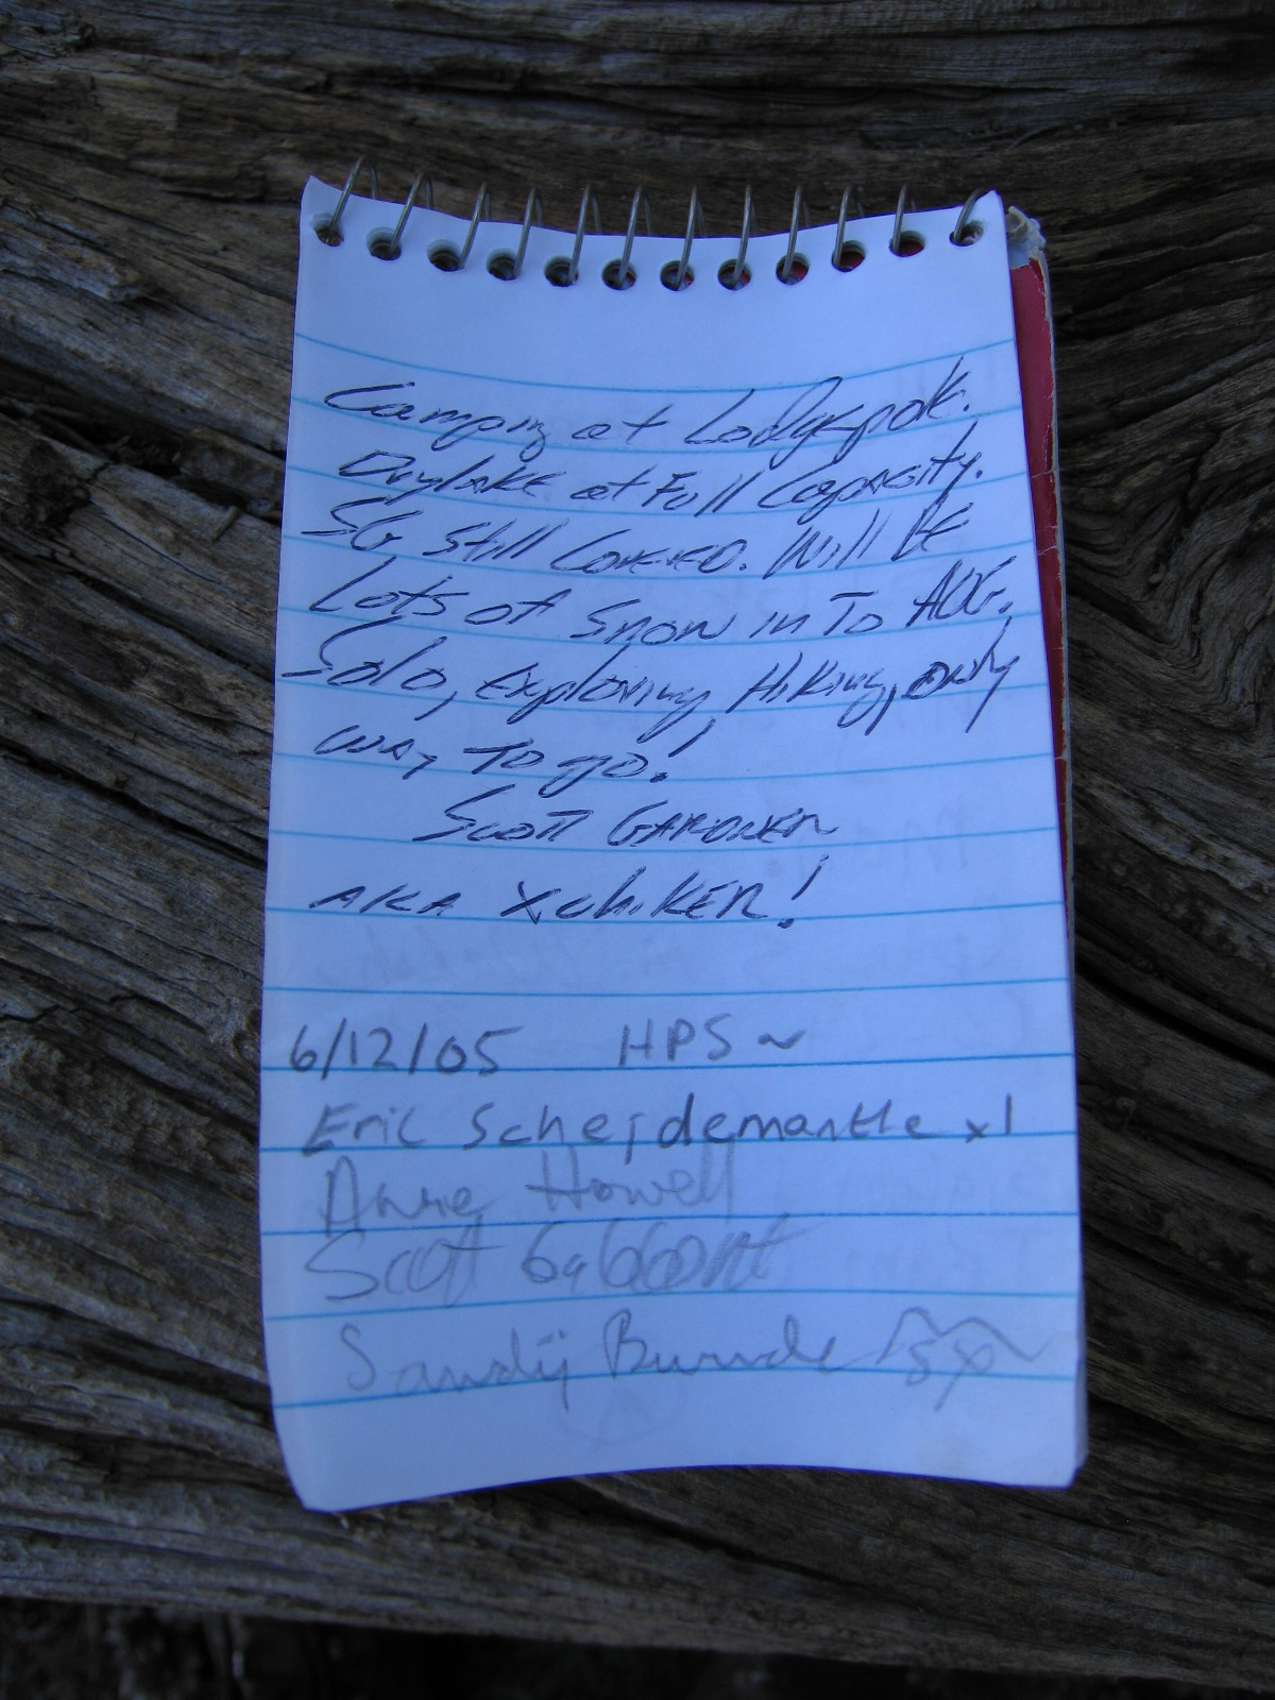 Camping at Lodgepole.
Drylake at Full Capacity.
SG still Covered. Will be
Lots of Snow in To AUG.
Solo, Exploring, Hiking, only
way To go!
Scott GARDNER
AKA XCHIKER!
6/12/05 HPS ~
Eric Scheidemantle x1
Anne Howell
Scott
Sandy Burnde